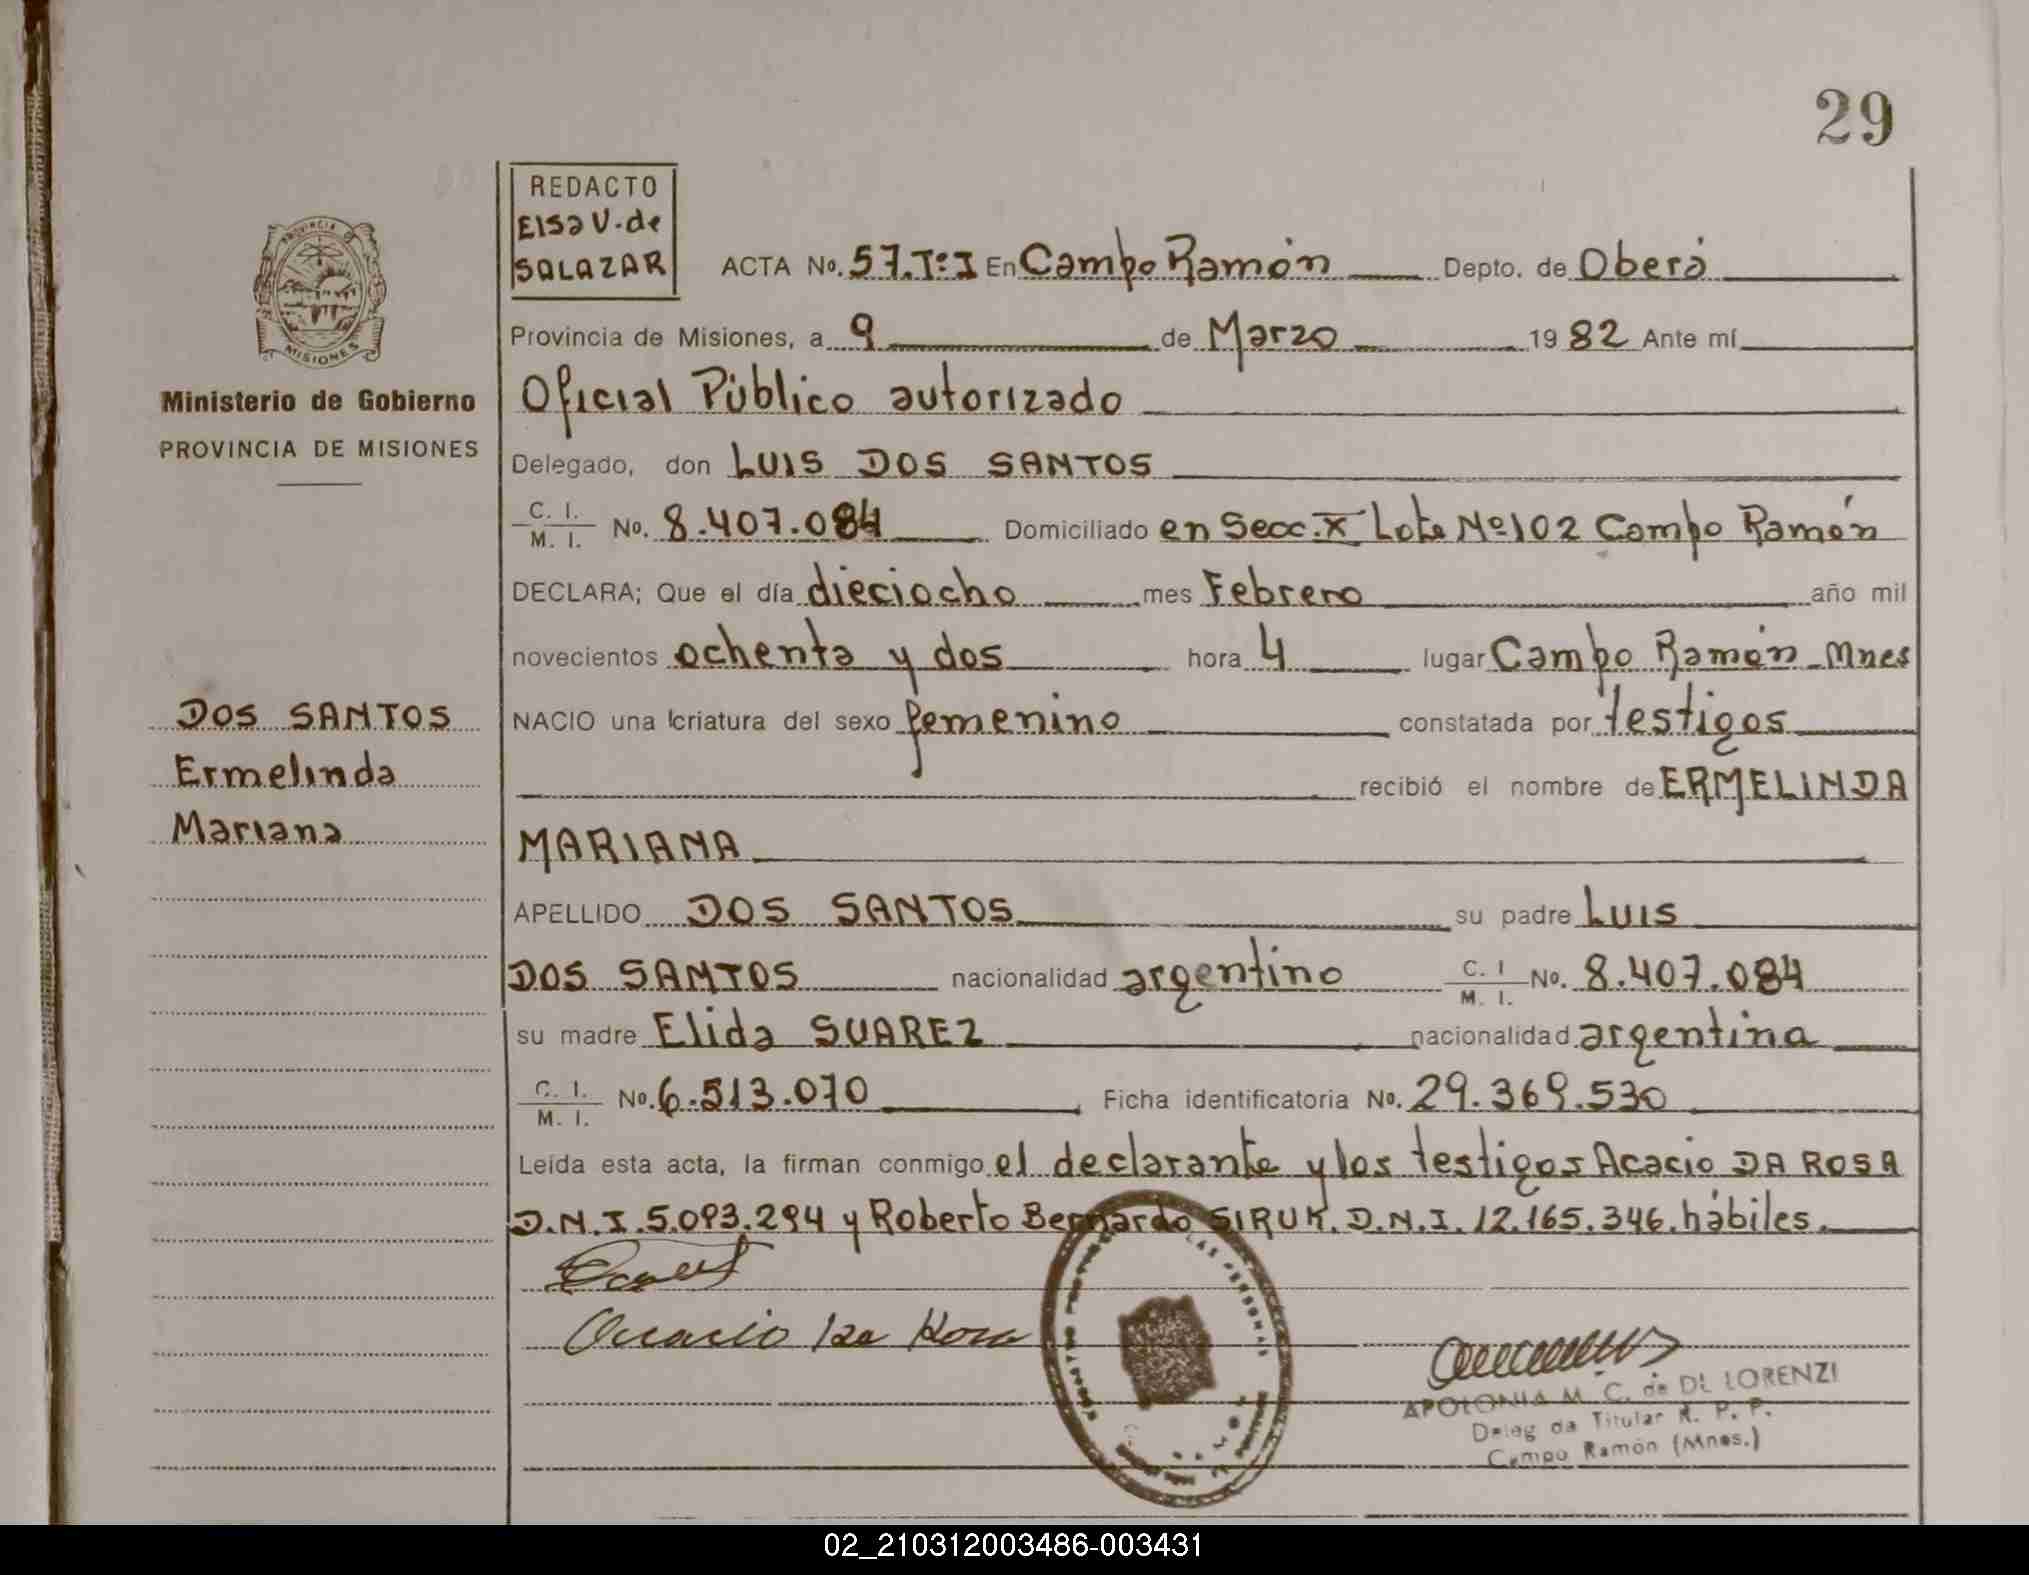 29
REDACTO
Elsa V. de
SALAZAR
PROVINCIA D
MISIONES
Ministerio de Gobierno
PROVINCIA DE MISIONES
ACTA No. 57. Tº I En Campo Ramón Depto. de Oberá
Provincia de Misiones, a 9 de Marzo 1982 Ante mí
Oficial Público autorizado
Delegado, don LUIS DOS SANTOS
C. I. / M. I. No. 8.407.084 Domiciliado en Secc. X Lote Nº 102 Campo Ramón
DECLARA; Que el día dieciocho mes Febrero año mil
novecientos ochenta y dos hora 4 lugar Campo Ramón Mnes
DOS SANTOS
Ermelinda
Mariana
NACIO una criatura del sexo femenino constatada por testigos
recibió el nombre de ERMELINDA
MARIANA
APELLIDO DOS SANTOS su padre LUIS
DOS SANTOS nacionalidad argentino C. I / M. I. No. 8.407.084
su madre Elida SUAREZ nacionalidad argentina
C. I. / M. I. No. 6.513.070 Ficha identificatoria No. 29.369.530
Leída esta acta, la firman conmigo el declarante y los testigos Acacio DA ROSA
D.N.I. 5.093.294 y Roberto Bernardo SIRUK. D.N.I. 12.165.346. hábiles.
Acacio Da Rosa
LAS PERSONAS
APOLONIA M. C. de DI LORENZI
Delegada Titular R. P. P.
Campo Ramón (Mnes.)
02_210312003486-003431